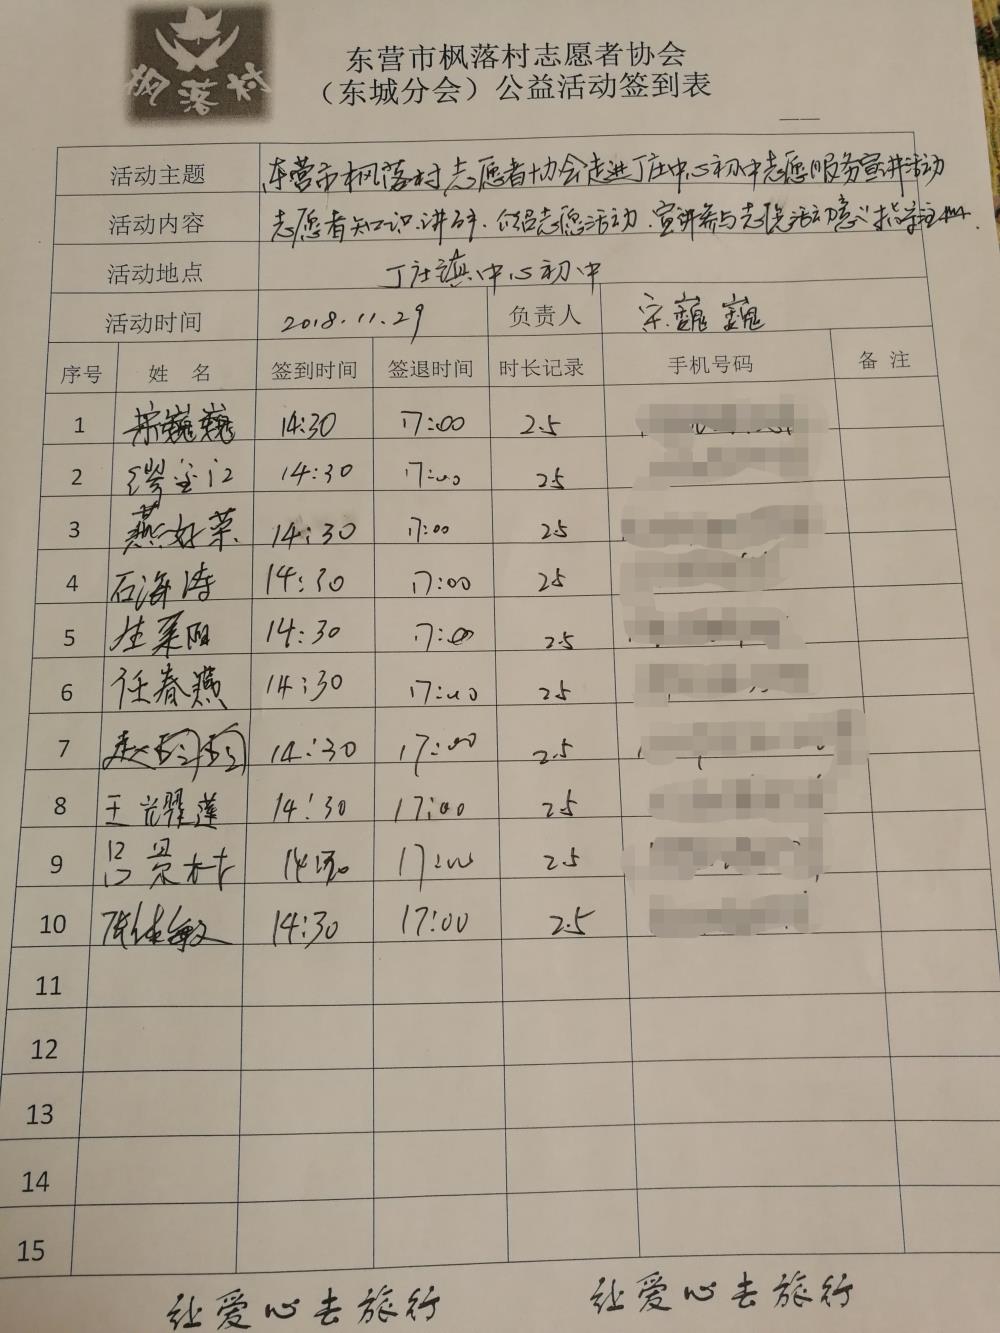 枫落村
东营市枫落村志愿者协会
（东城分会）公益活动签到表
活动主题 东营市枫落村志愿者协会走进丁庄中心初中志愿服务宣讲活动
活动内容 志愿者知识讲研、介绍志愿活动、宣讲参与志愿活动意义
活动地点 丁庄镇中心初中
活动时间 2018.11.29 负责人 宋巍巍
序号 姓 名 签到时间 签退时间 时长记录 手机号码 备 注
1 宋巍巍 14:30 17:00 2.5
2 14:30 17:00 25
3 燕好荣 14:30 17:00 25
4 石海涛 14:30 17:00 25
5 14:30 17:00 25
6 任春燕 14:30 17:00 25
7 14:30 17:00 2.5
8 王光翠莲 14:30 17:00 25
9 吕景林 14:30 17:00 25
10 14:30 17:00 2.5
11
12
13
14
15
让爱心去旅行 让爱心去旅行